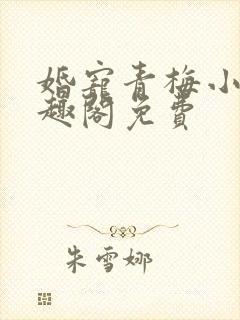 婚宠青梅小
趣阁免费
朱雪娜